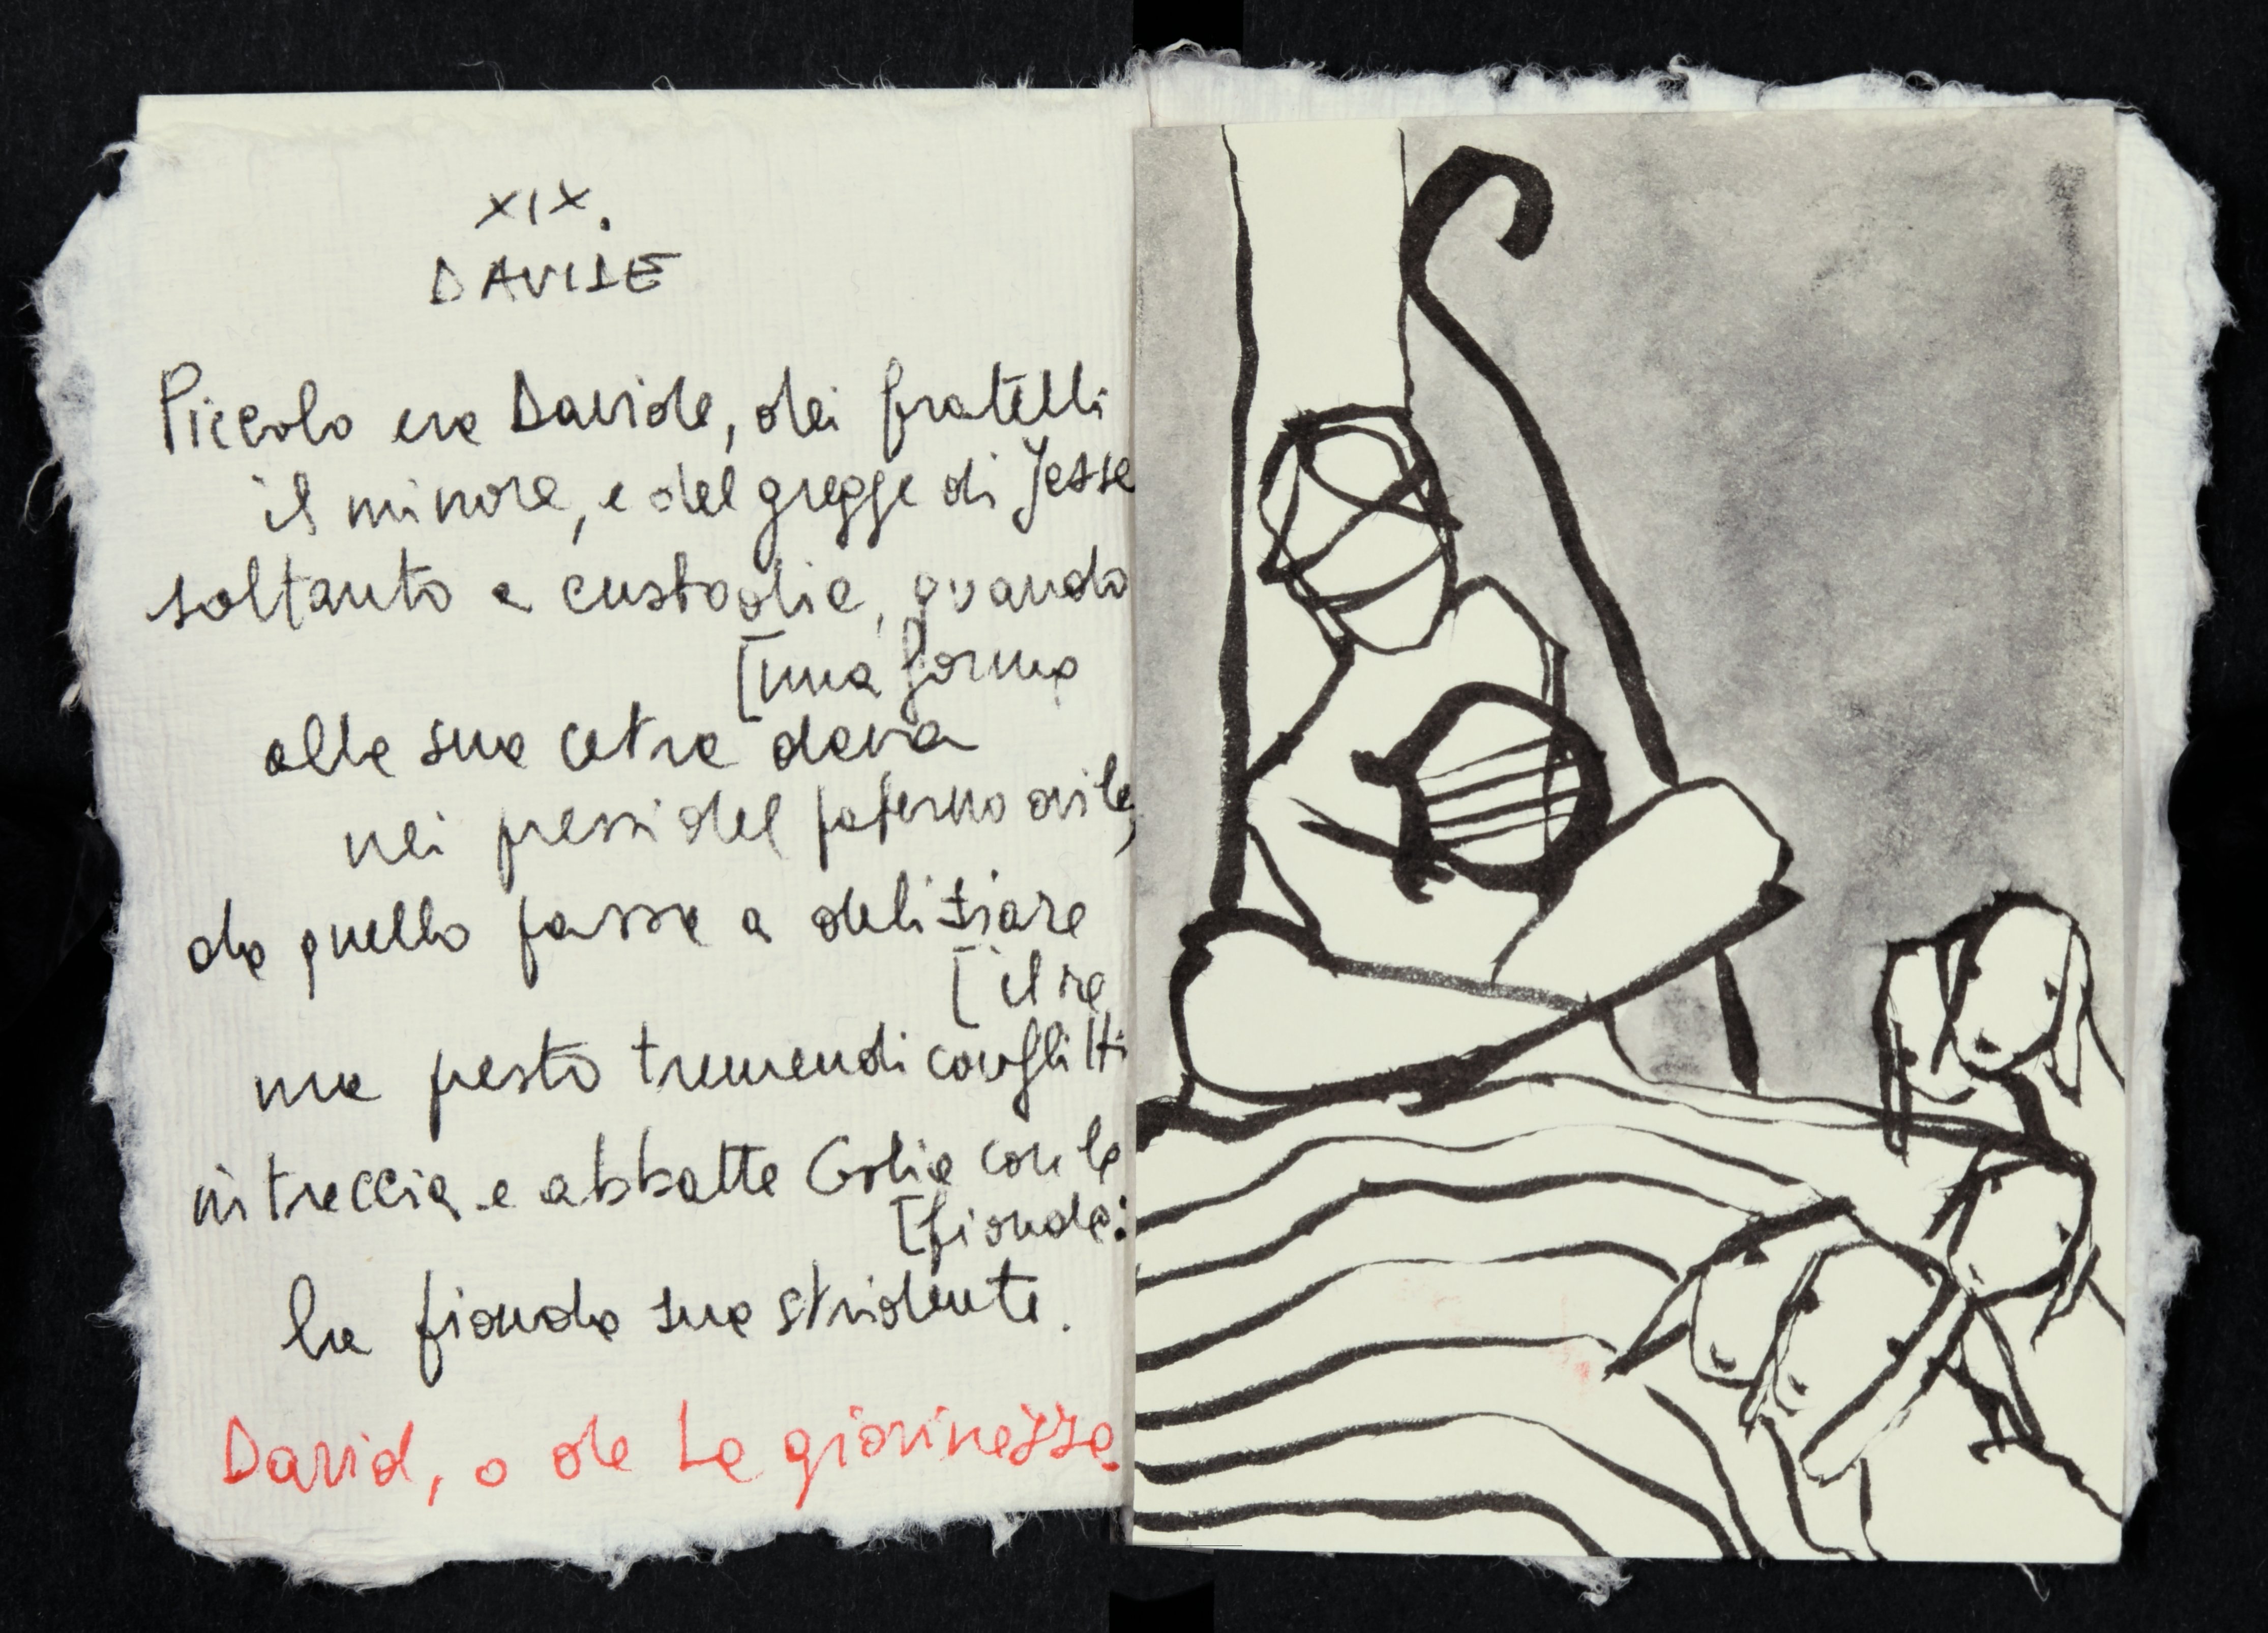 XIX.
DAVIDE
Piccolo era Davide, dei fratelli
il minore, e del gregge di Jesse
soltanto a custodia, quando
[una forma
alla sua cetra dava
nei pressi del paterno ovile,
da quello passa a deliziare
[il re
ma presto tremendi conflitti
intreccia e abbatte Golia con la
[fionda:
la fionda sua stridente.
David, o de La giovinezza